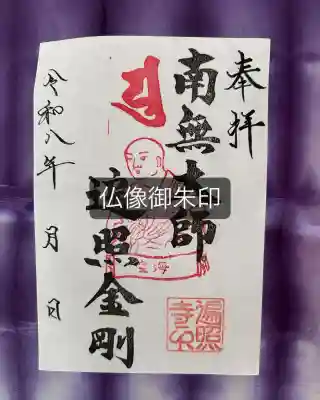 奉拝
南無大師
遍照金剛
令和八年 月 日
仏像御朱印
遍照
寺印